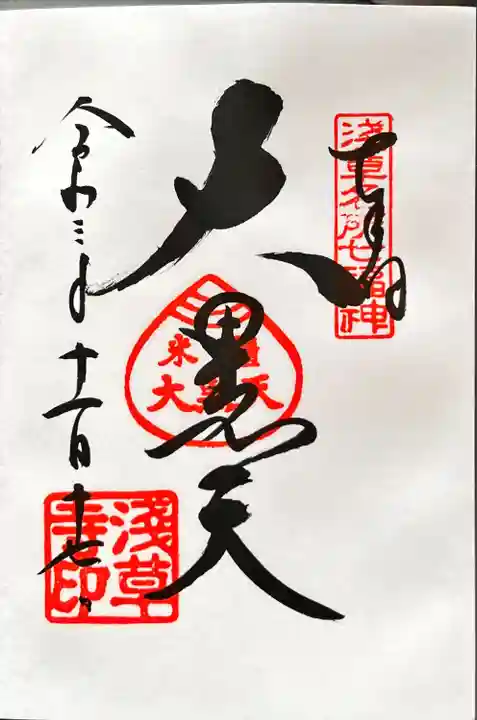 奉拝
浅草名所七福神
大黒天
米
大黒天
令和三年十一月十七日
浅草
寺印